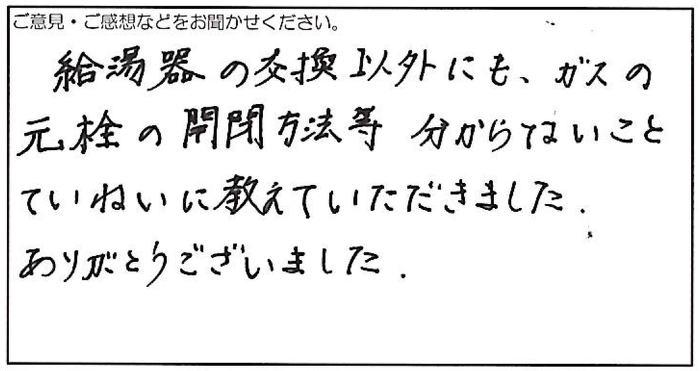 ご意見・ご感想などをお聞かせください。
給湯器の交換以外にも、ガスの
元栓の開閉方法等 分からないこと
ていねいに教えていただきました.
ありがとうございました.